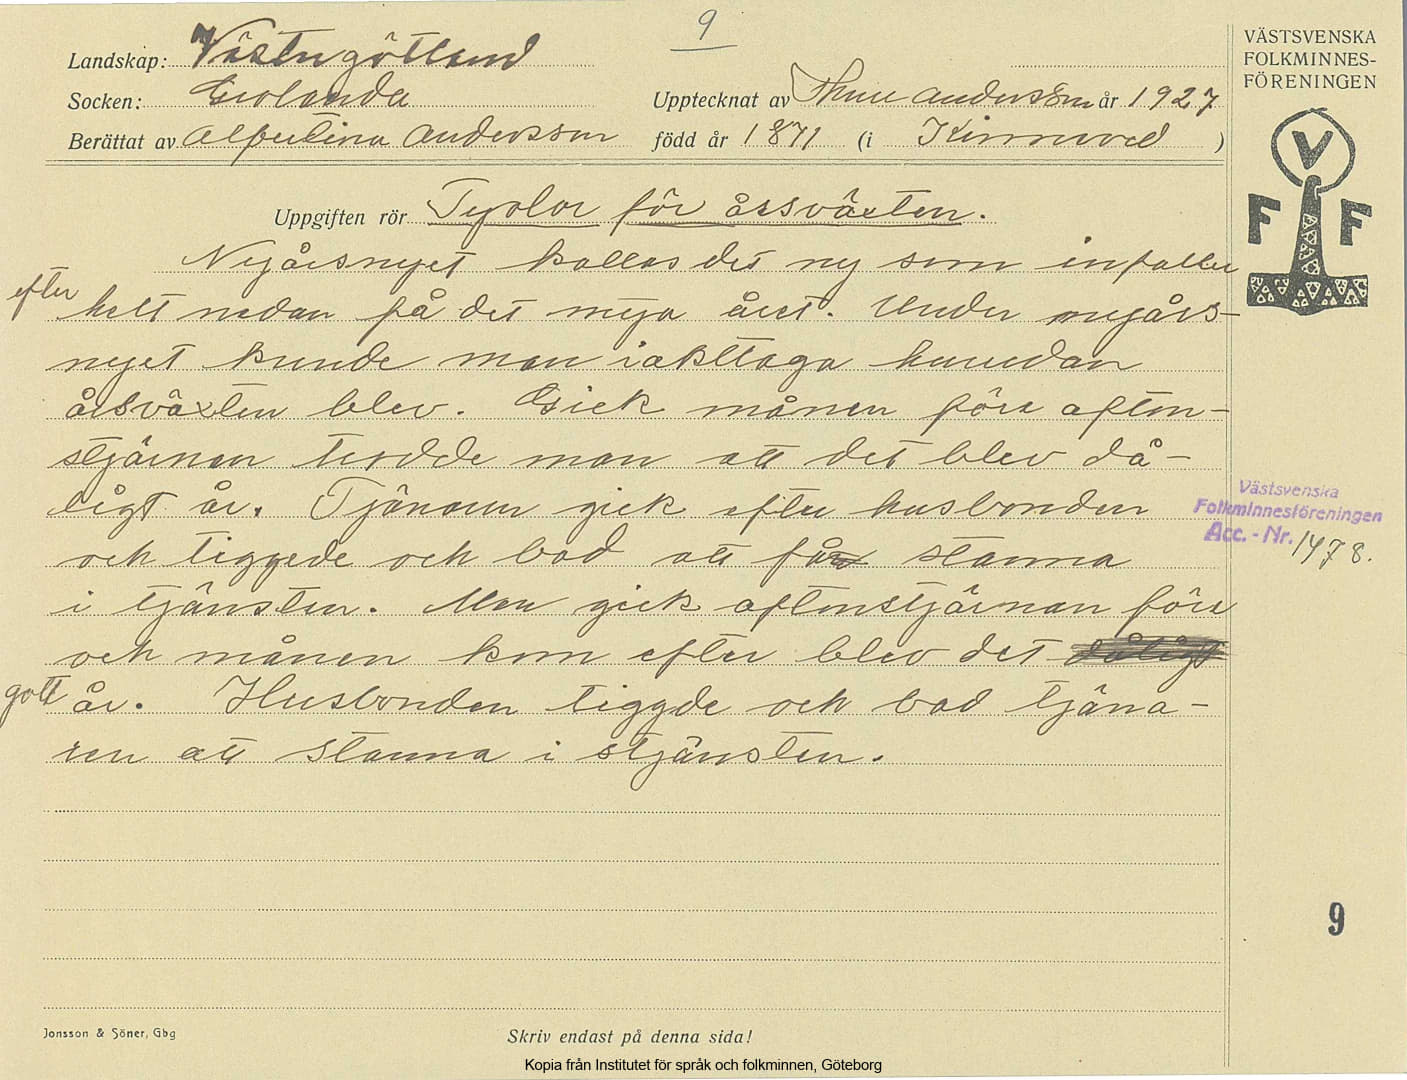 9
Landskap: Västergötland
Socken: Grolanda
Upptecknat av Thure Andersson år 1927
Berättat av Albertina Andersson född år 1871 (i Kinneved)
VÄSTSVENSKA
FOLKMINNES-
FÖRENINGEN
V
F F
Uppgiften rör Tydor för årsväxten.
Nyårsnyet kallas det ny som infaller
efter helt nedan på det nya året. Under nyårs-
nyet kunde man iakttaga hurudan
årsväxten blev. Gick månen före afton-
stjärnan trodde man att det blev då-
ligt år. Tjänaren gick efter husbonden
och tiggede och bad att få stanna
i tjänsten. Men gick aftonstjärnan före
och månen kom efter blev det
gott år. Husbonden tiggde och bad tjäna-
ren att stanna i stjänsten.
Västsvenska
Folkminnesföreningen
Acc. - Nr. 1478.
9
Jonsson & Söner, Gbg
Skriv endast på denna sida!
Kopia från Institutet för språk och folkminnen, Göteborg